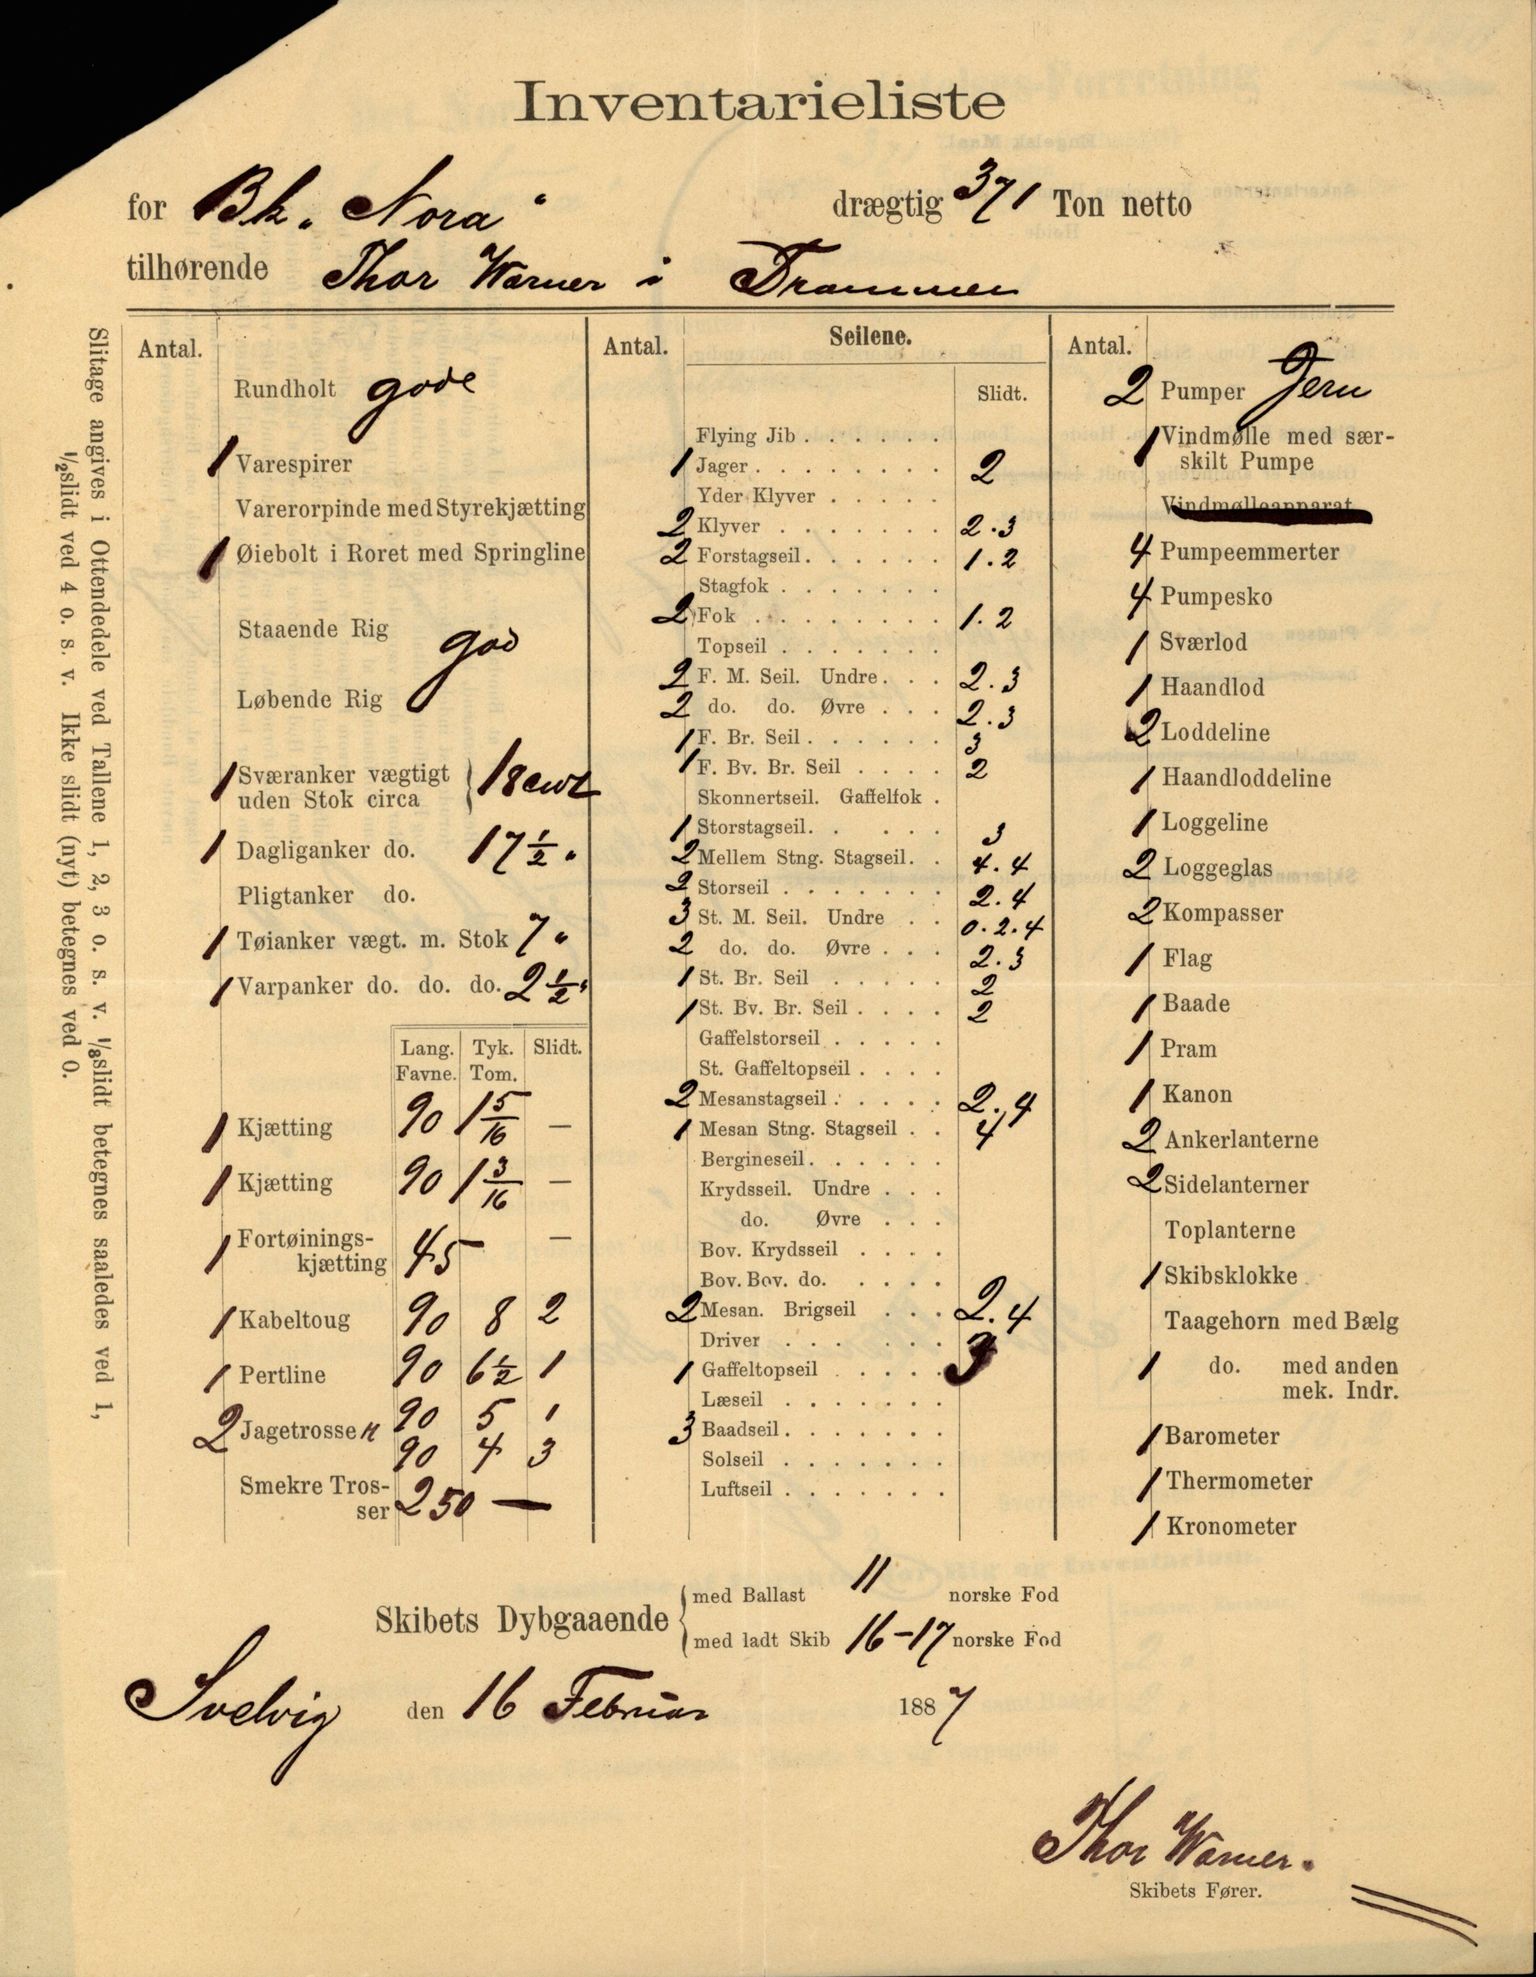 Inventarieliste
for Bk. "Nora" drægtig 371 Ton netto
tilhørende Thor Warner i Drammen
Slitage angives i Ottendedele ved Tallene 1, 2, 3 o. s. v. 1/8slidt betegnes saaledes ved 1,
1/2slidt ved 4 o. s. v. Ikke slidt (nyt) betegnes ved 0.
Antal.
Rundholt gode
1 Varespirer
Varerorpinde med Styrekjætting
1 Øiebolt i Roret med Springline
Staaende Rig
god
Løbende Rig
1 Sværanker vægtigt
uden Stok circa } 18 cwt
1 Dagliganker do. 17 1/2 "
Pligtanker do.
1 Tøianker vægt. m. Stok 7 "
1 Varpanker do. do. do. 2 1/2 "
Lang. Tyk. Slidt.
Favne. Tom.
1 Kjætting 90 1 5/16 —
1 Kjætting 90 1 3/16 —
1 Fortøinings-
kjætting 45 — —
1 Kabeltoug 90 8 2
1 Pertline 90 6 1/2 1
2 Jagetrossen 90 5 1
90 4 3
Smekre Tros-
ser 250 —
Antal. Seilene.
Slidt.
Flying Jib . . . . . .
1 Jager . . . . . . . . 2
Yder Klyver . . . . .
2 Klyver . . . . . . . 2.3
2 Forstagseil . . . . . . 1.2
Stagfok . . . . . . .
2 Fok . . . . . . . . 1.2
Topseil . . . . . . .
2 F. M. Seil. Undre . . . 2.3
2 do. do. Øvre . . . 2.3
1 F. Br. Seil . . . . . . 3
1 F. Bv. Br. Seil . . . . 2
Skonnertseil. Gaffelfok .
1 Storstagseil . . . . . 3
2 Mellem Stng. Stagseil . . 4.4
2 Storseil . . . . . . . 2.4
3 St. M. Seil. Undre . . 0.2.4
2 do. do. Øvre . . . 2.3
1 St. Br. Seil . . . . . 2
1 St. Bv. Br. Seil . . . . 2
Gaffelstorseil . . . . .
St. Gaffeltopseil . . . .
2 Mesanstagseil . . . . . 2.4
1 Mesan Stng. Stagseil . . 4
Bergineseil . . . . . .
Krydsseil. Undre . . .
do. Øvre . . .
Bov. Krydsseil . . . .
Bov. Bov. do. . . . .
2 Mesan. Brigseil . . . 2.4
Driver . . . . . .
1 Gaffeltopseil . . . . . 3
Læseil . . . . . . .
3 Baadseil . . . . . . .
Solseil . . . . . . .
Luftseil . . . . . . .
Antal.
2 Pumper Jern
1 Vindmølle med sær-
skilt Pumpe
Vindmølleapparat
4 Pumpeemmerter
4 Pumpesko
1 Sværlod
1 Haandlod
2 Loddeline
1 Haandloddeline
1 Loggeline
2 Loggeglas
2 Kompasser
1 Flag
1 Baade
1 Pram
1 Kanon
2 Ankerlanterne
2 Sidelanterner
Toplanterne
1 Skibsklokke
Taagehorn med Bælg
1 do. med anden
mek. Indr.
1 Barometer
1 Thermometer
1 Kronometer
Skibets Dybgaaende { med Ballast 11 norske Fod
med ladt Skib 16-17 norske Fod
Svelvig den 16 Februar 1887
Thor Warner.
Skibets Fører.